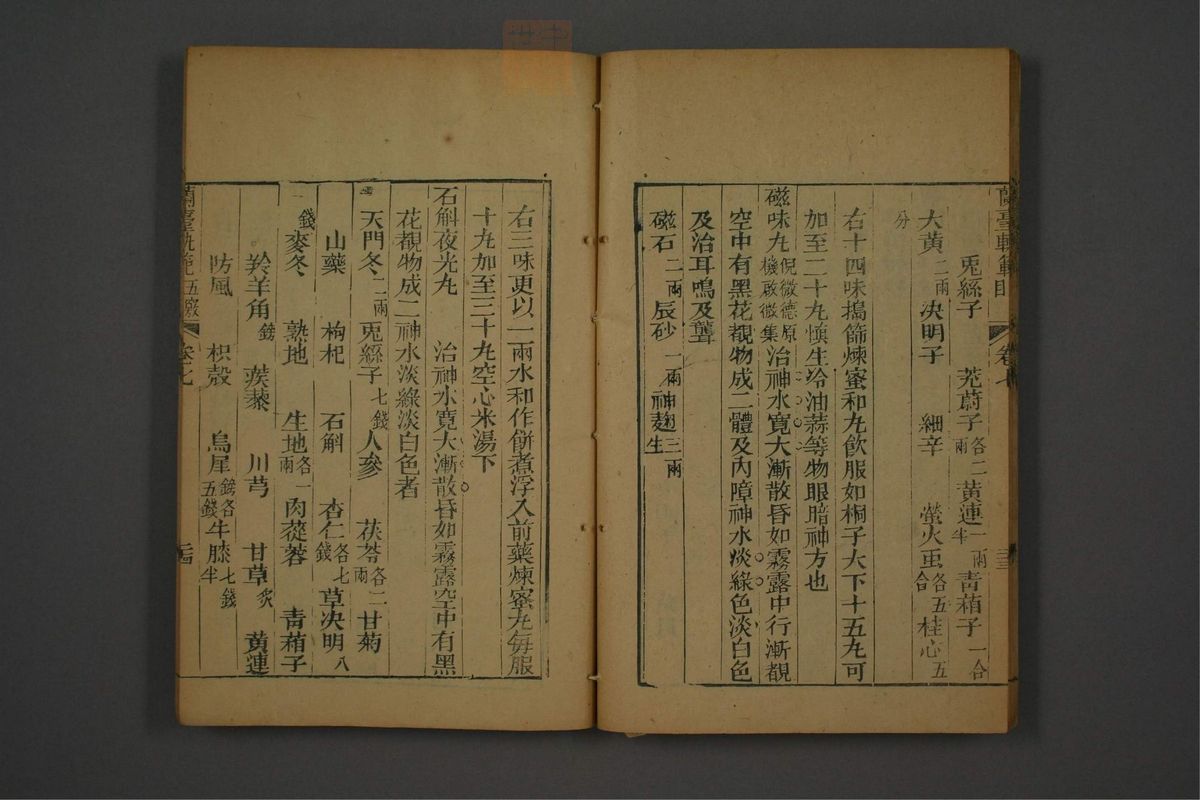 蘭臺軌範目 卷七 三三
兎絲子 茺蔚子各二兩 黃連一兩半 青葙子一合
大黃二兩 决明子 細辛 螢火虫各五合 桂心五
分
右十四味搗篩煉蜜和丸飲服如桐子大下十五丸可
加至二十丸愼生冷油蒜等物眼暗神方也
磁味丸倪微德原機啟微集治神水寬大漸散昏如霧露中行漸覩
空中有黑花覩物成二體及內障神水淡綠色淡白色
及治耳鳴及聾
磁石二兩 辰砂一兩 神麯三兩生
右三味更以一兩水和作餅煮浮入前藥煉蜜丸每服
十丸加至三十丸空心米湯下
石斛夜光丸 治神水寬大漸散昏如霧露空中有黑
花覩物成二神水淡綠淡白色者
天門冬二兩 兎絲子七錢 人參 茯苓各二兩 甘菊
山藥 枸杞 石斛 杏仁各七錢 草决明八
錢 麥冬 熟地 生地各一兩 肉蓯蓉 青葙子
羚羊角鎊 蒺藜 川芎 甘草炙 黃連
防風 枳殼 烏犀鎊各五錢 牛膝七錢半
蘭臺軌範 五竅 卷七